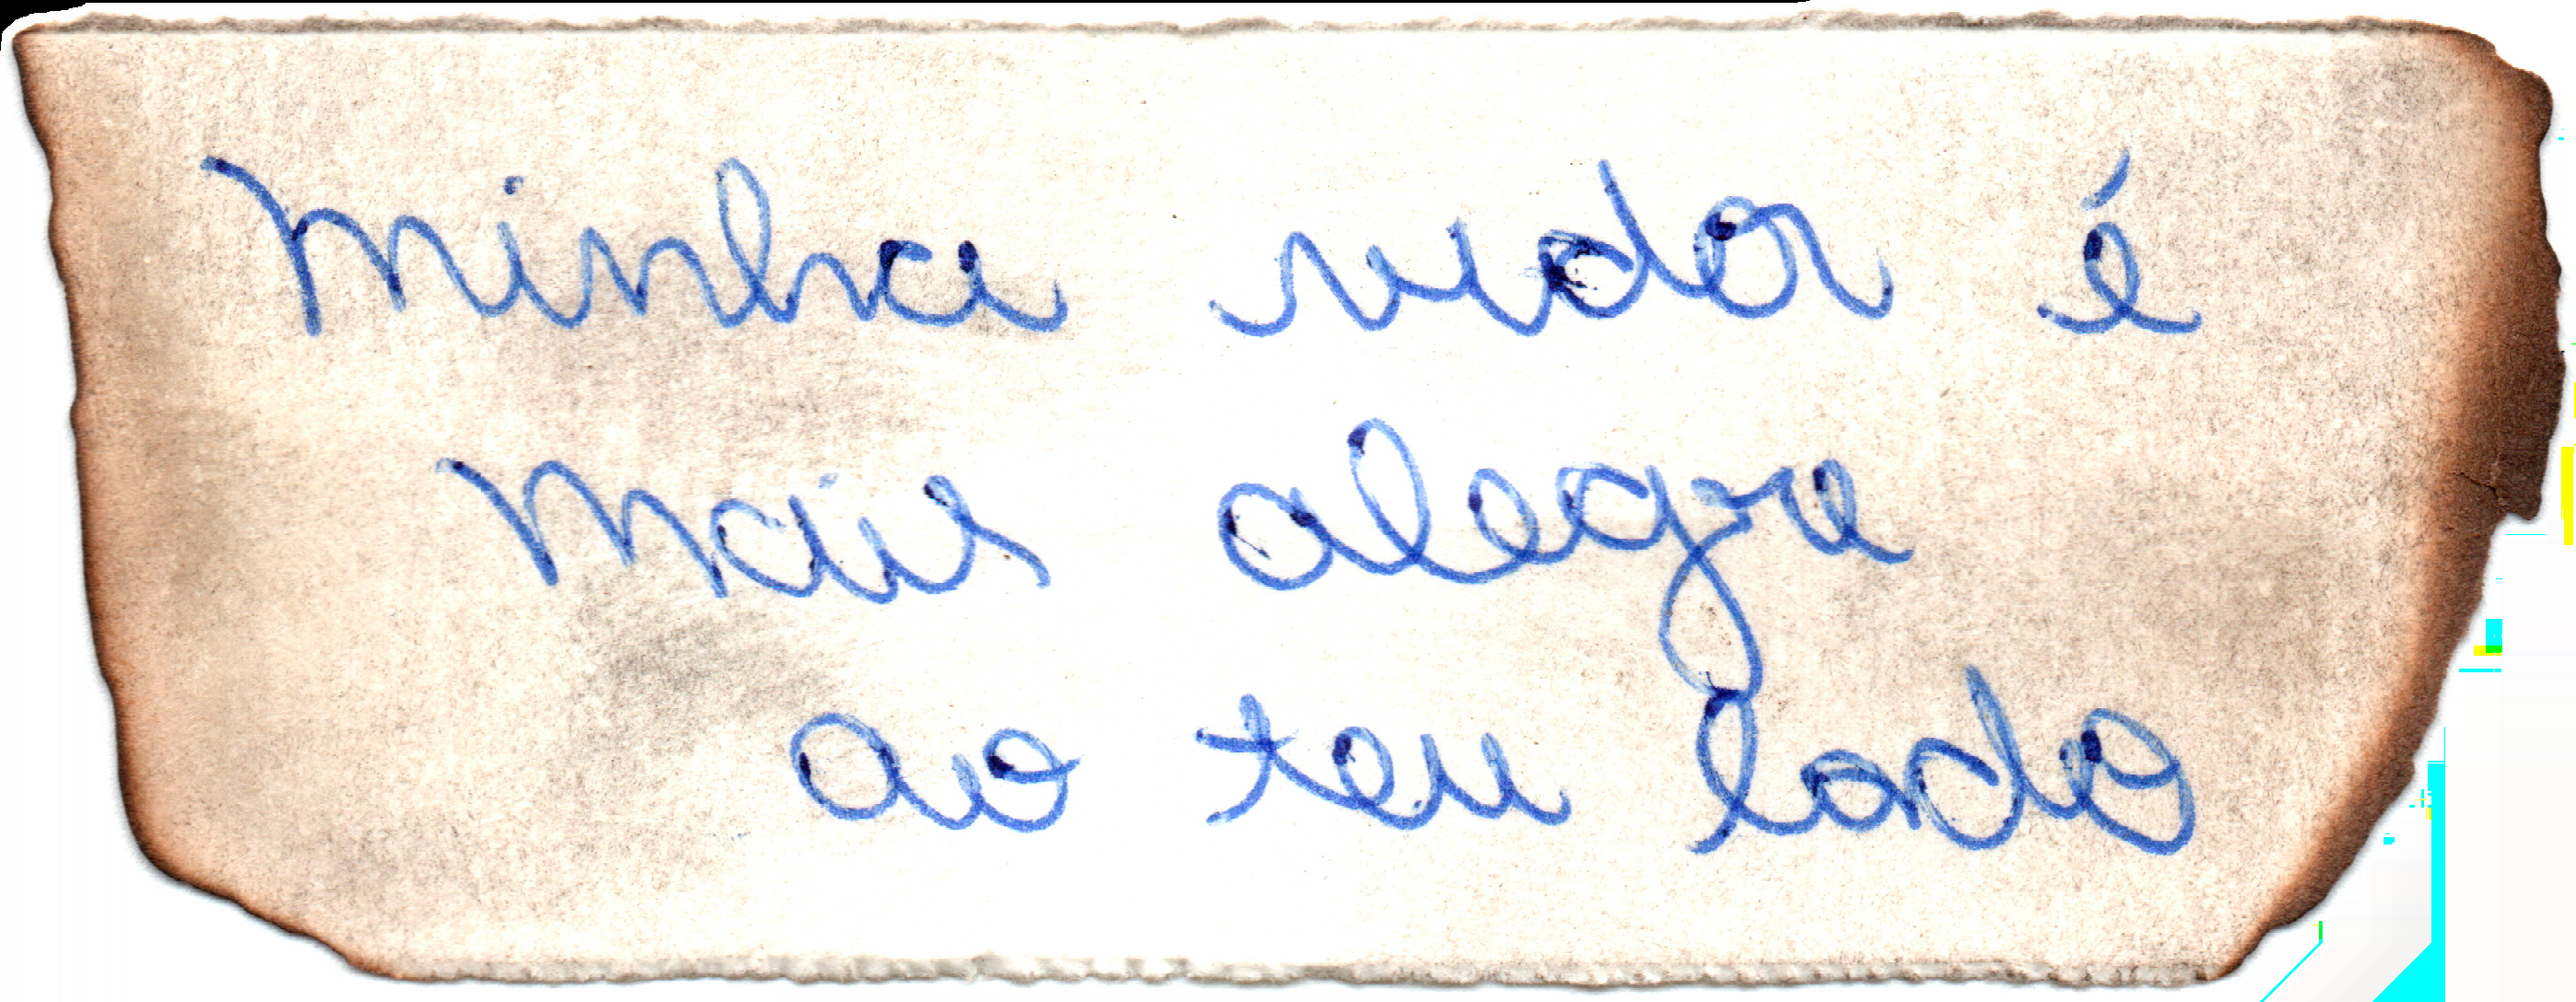 Minha vida é
mais alegre
ao teu lado